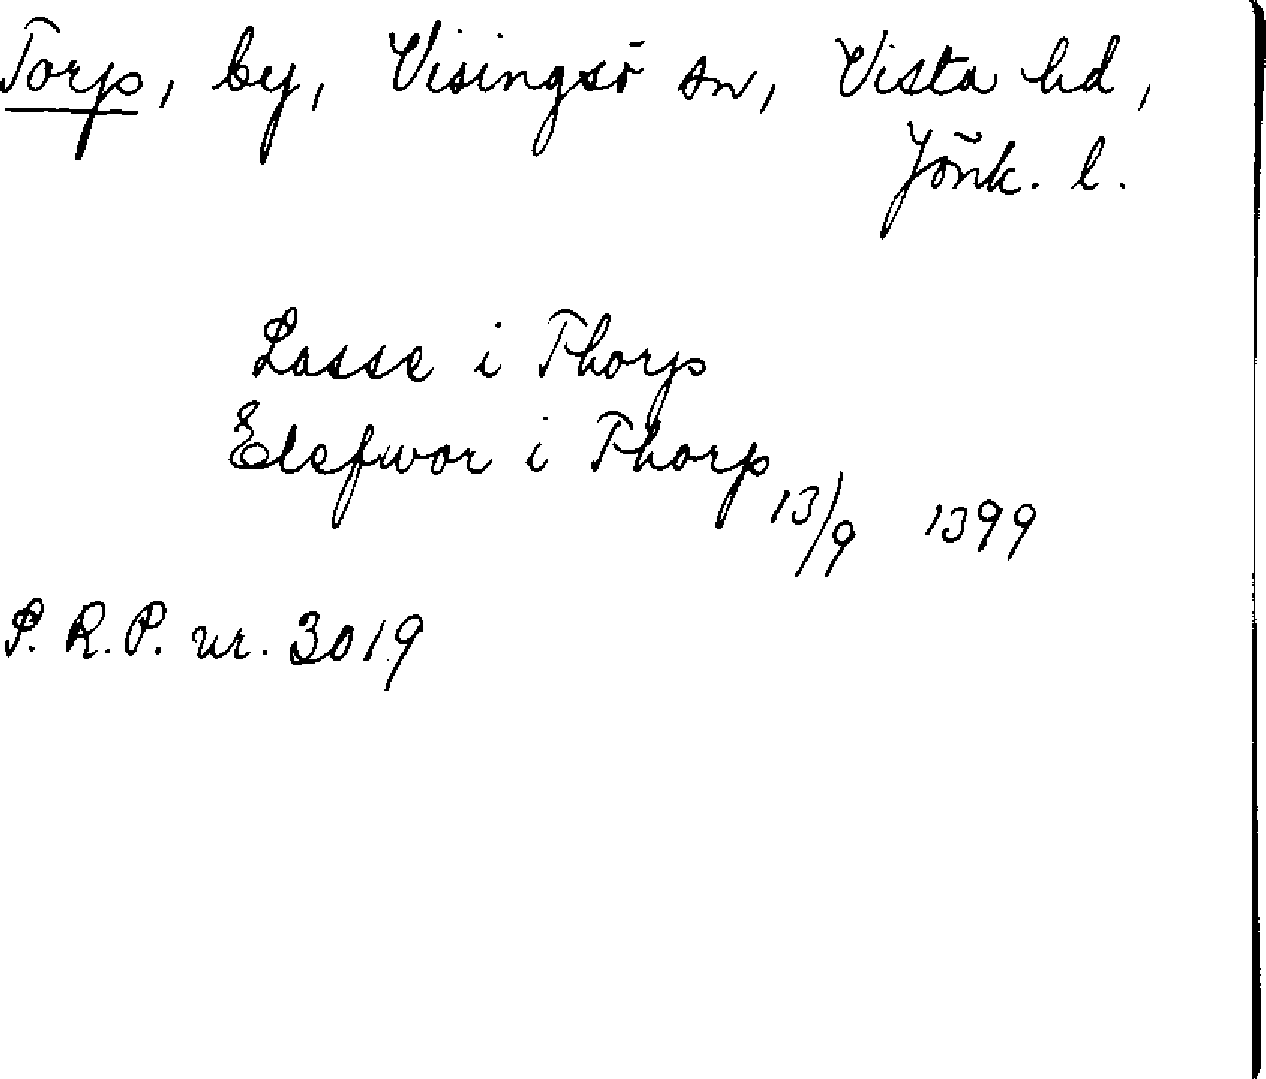 Torp, by, Visingsö sn, Vista hd,
Jönk. l.
Lasse i Thorp
Elefwor i Thorp
13/9 1399
P. R. P. nr. 3019